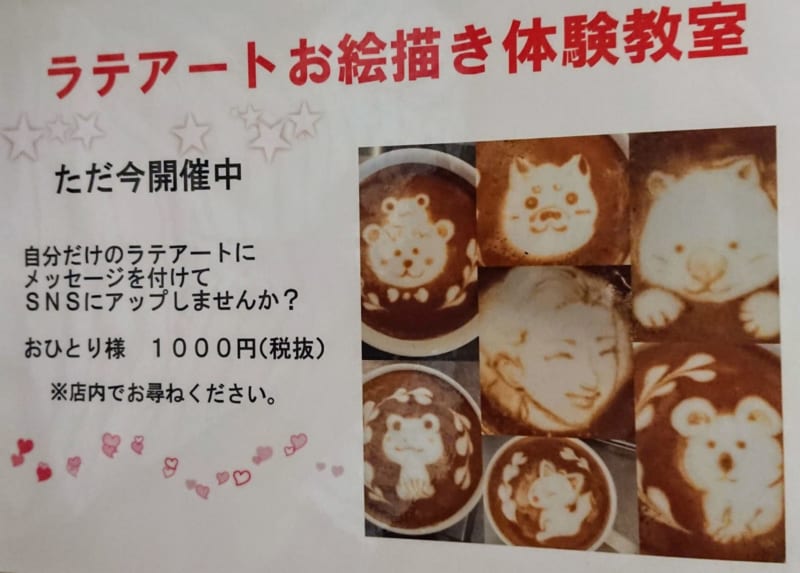 ラテアートお絵描き体験教室
ただ今開催中
自分だけのラテアートに
メッセージを付けて
ＳＮＳにアップしませんか？
おひとり様　１０００円（税抜）
※店内でお尋ねください。